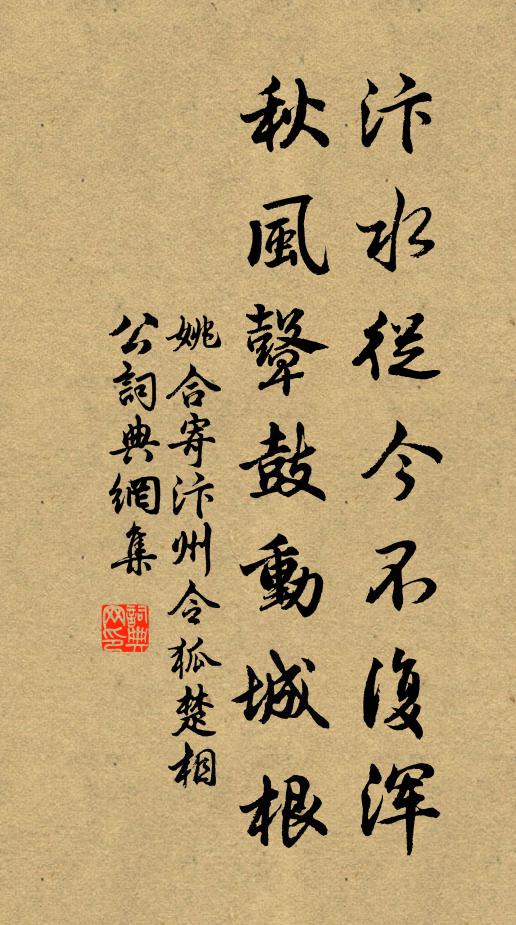 汴水從今不復浑
秋風鼙鼓動城根
姚合寄汴州令狐楚相
公詞典網集
詞典
网印